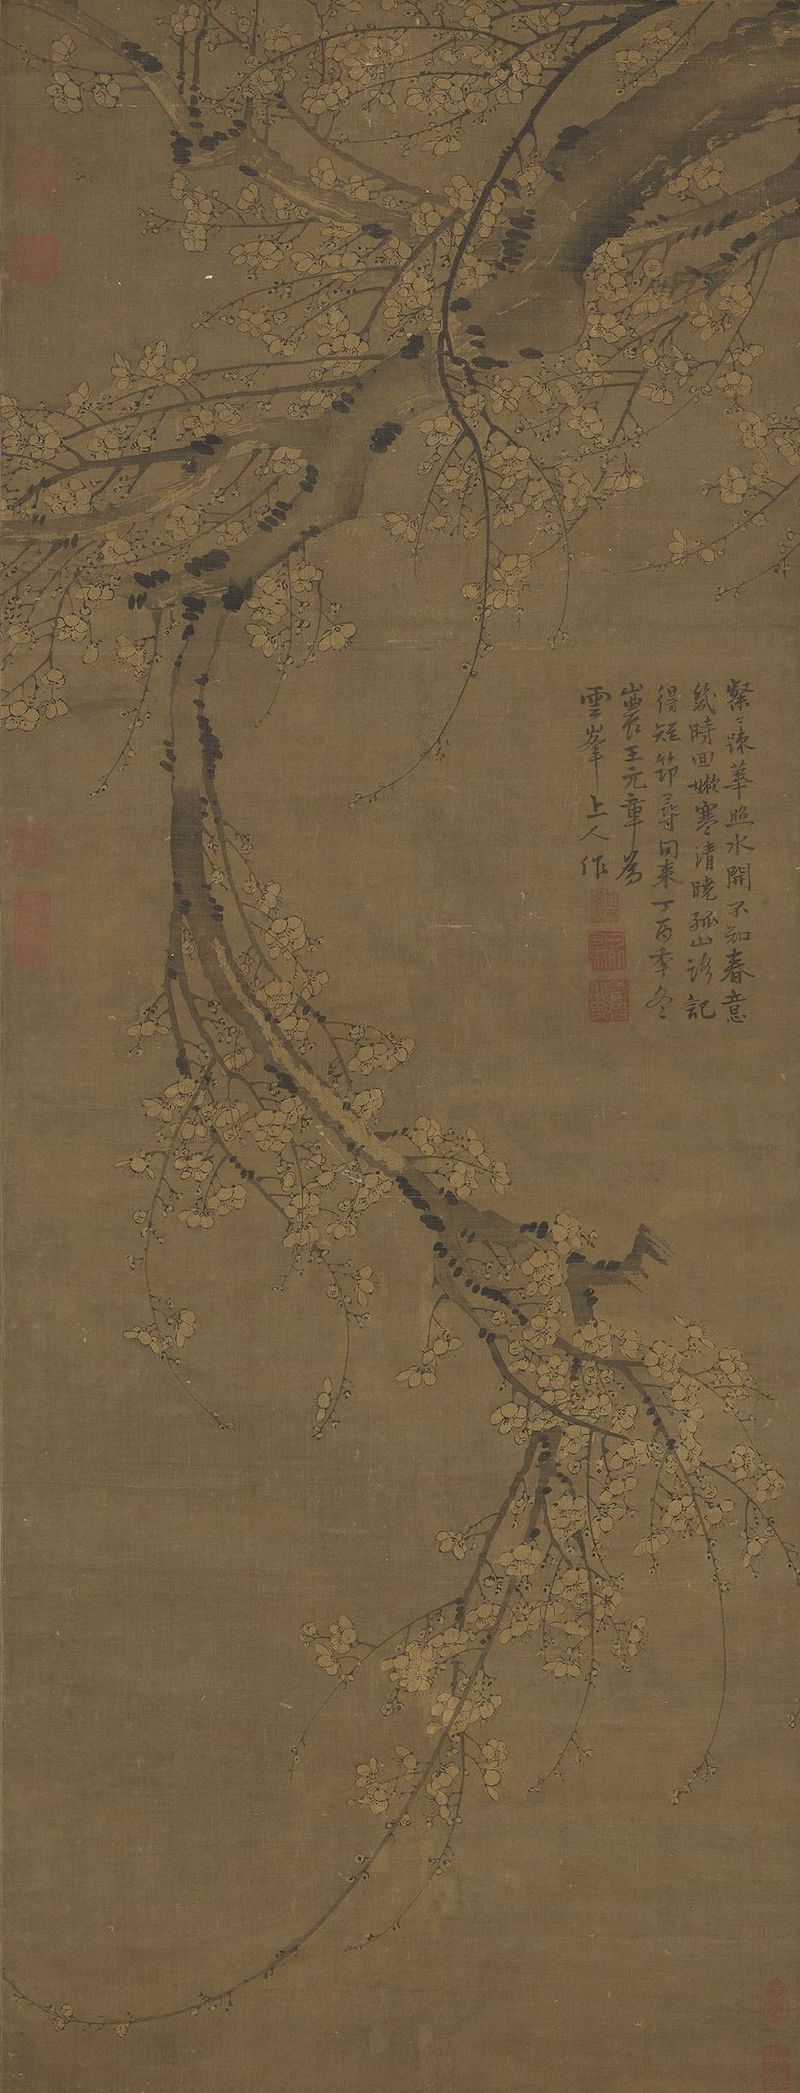 粲〻疎華照水開不知春意
幾時回嫩寒清曉孤山路記
得短笻尋句來丁酉季冬
山農王元章爲
雲峯上人作